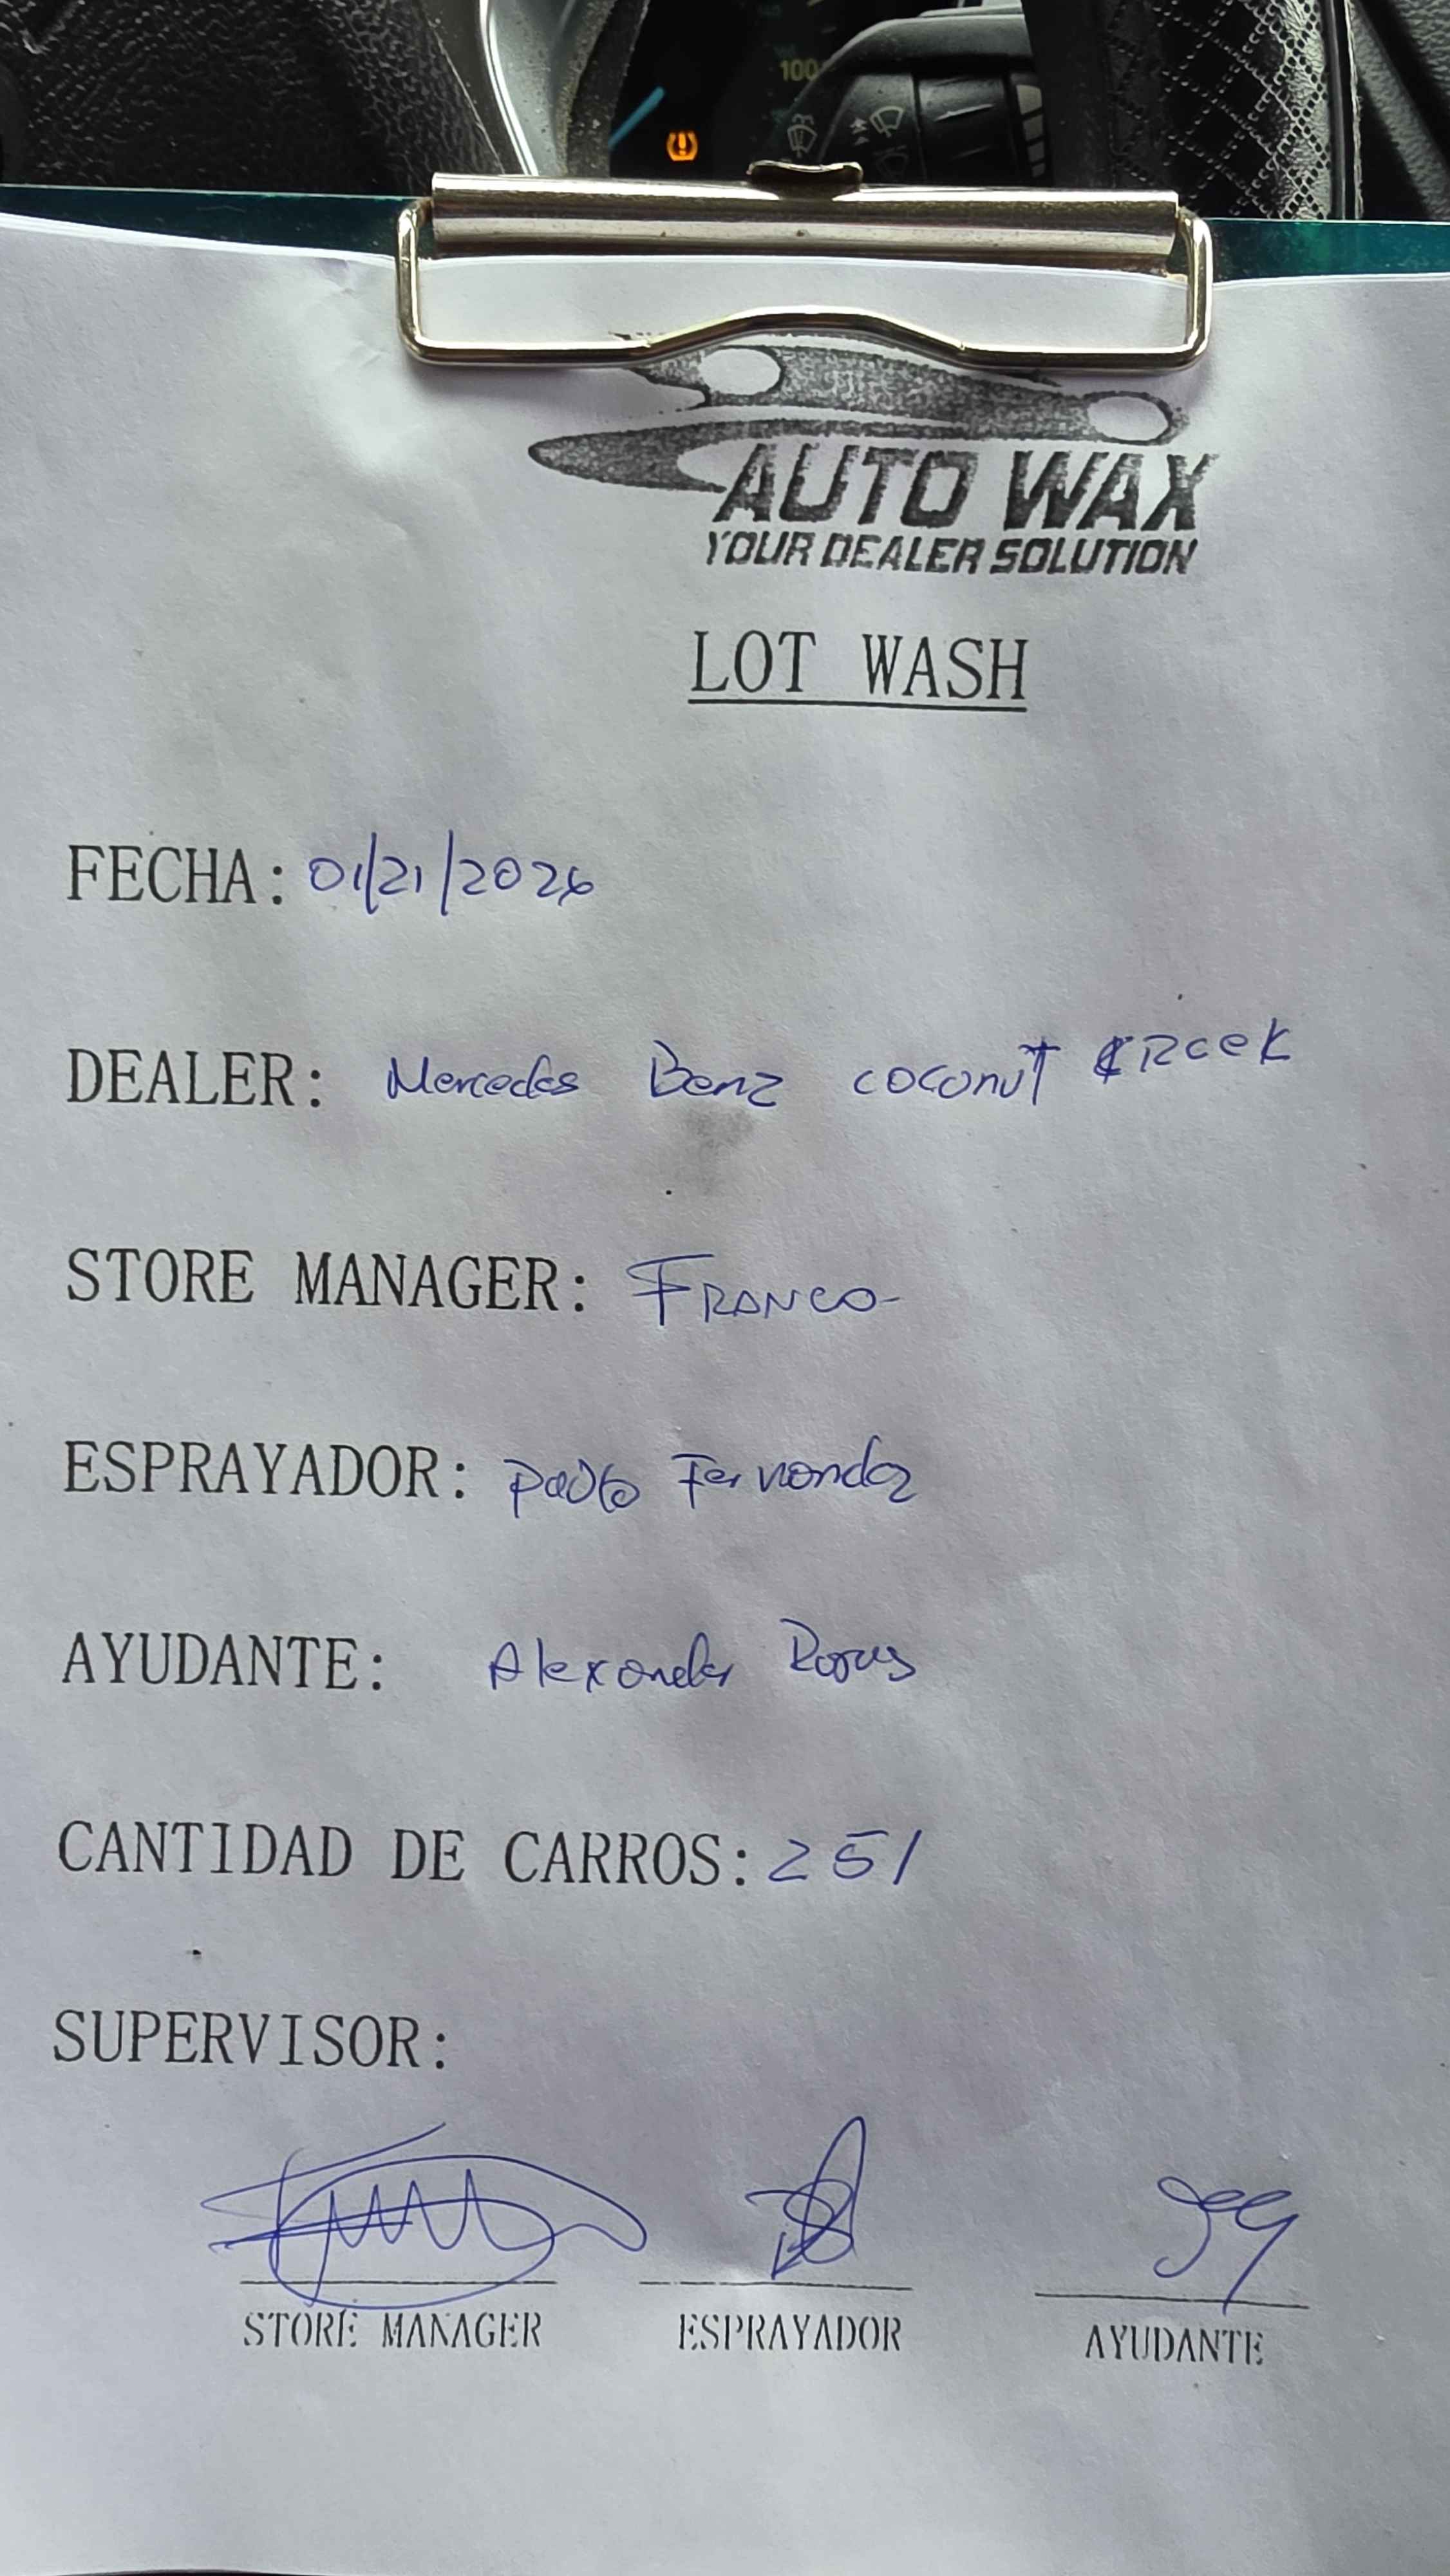 100
AUTO WAX
YOUR DEALER SOLUTION
LOT WASH
FECHA: 01/21/2026
DEALER: Mercedes Benz coconut CReek
STORE MANAGER: FRANCO
ESPRAYADOR: Pablo Fernandez
AYUDANTE: Alexander Rojas
CANTIDAD DE CARROS: 251
SUPERVISOR:
STORE MANAGER ESPRAYADOR AYUDANTE